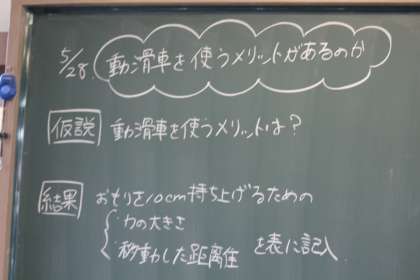 5/28. 動滑車を使うメリットがあるのか
仮説 動滑車を使うメリットは？
結果 おもりを10cm持ち上げるための
力の大きさ
移動した距離 を表に記入